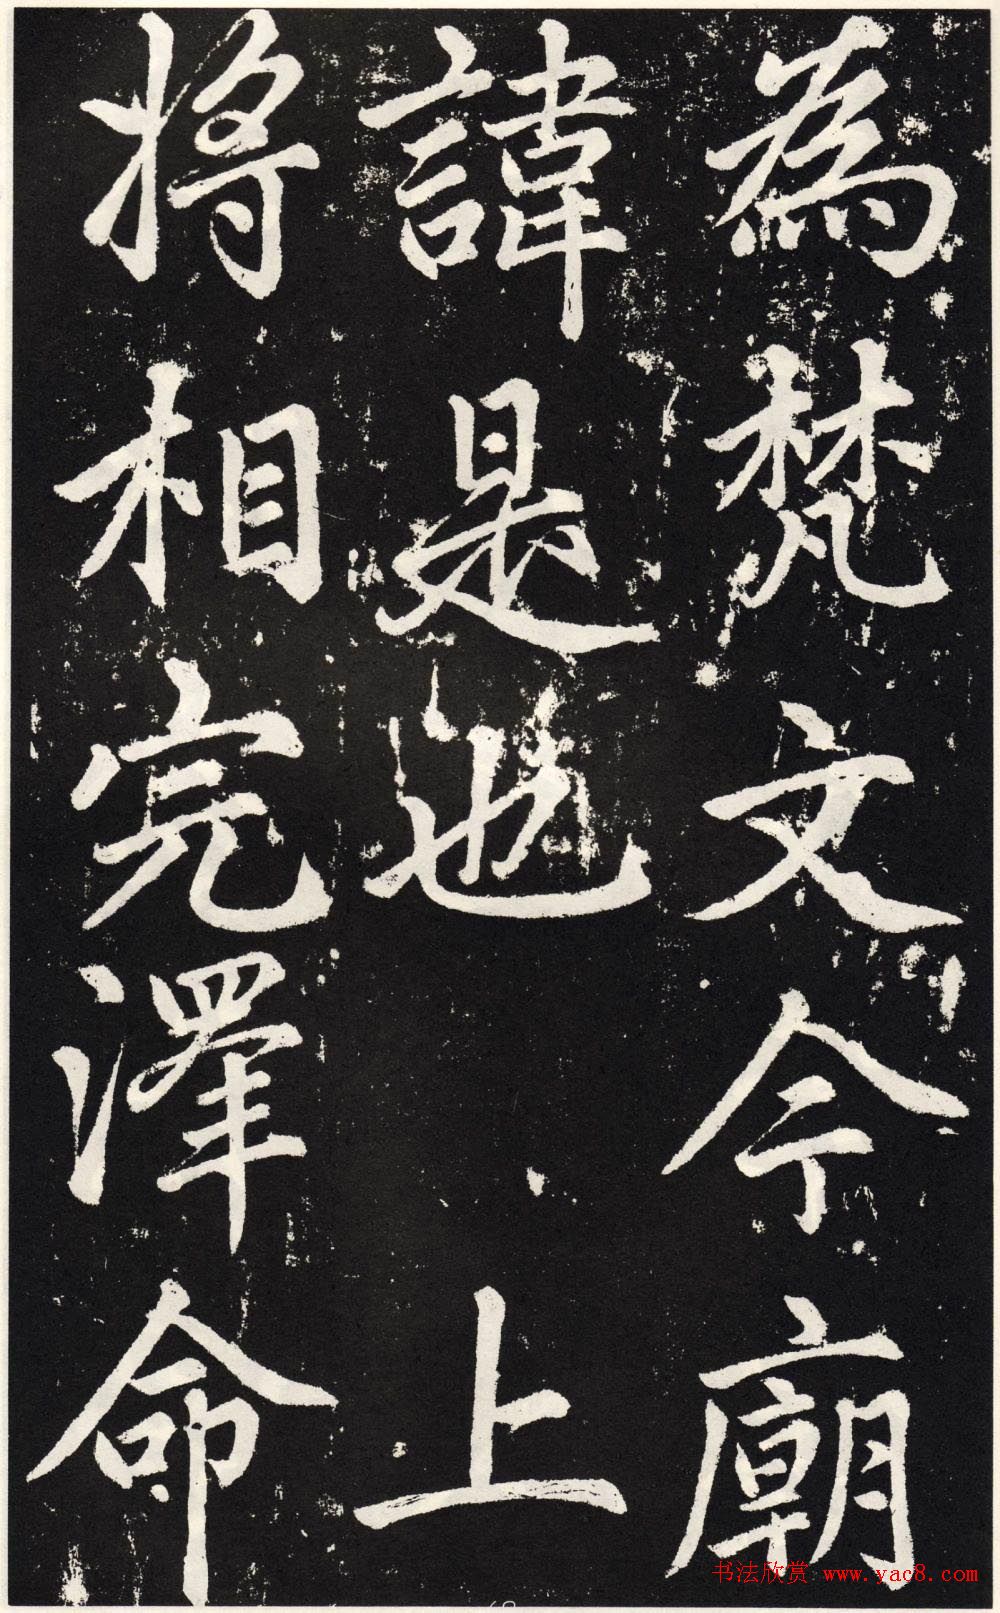 為梵文今廟
諱是也 上
將相完澤命
书法欣赏 www.yac8.com